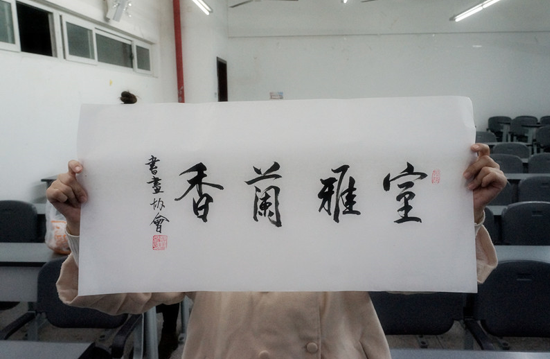 室雅蘭香
書畫协會